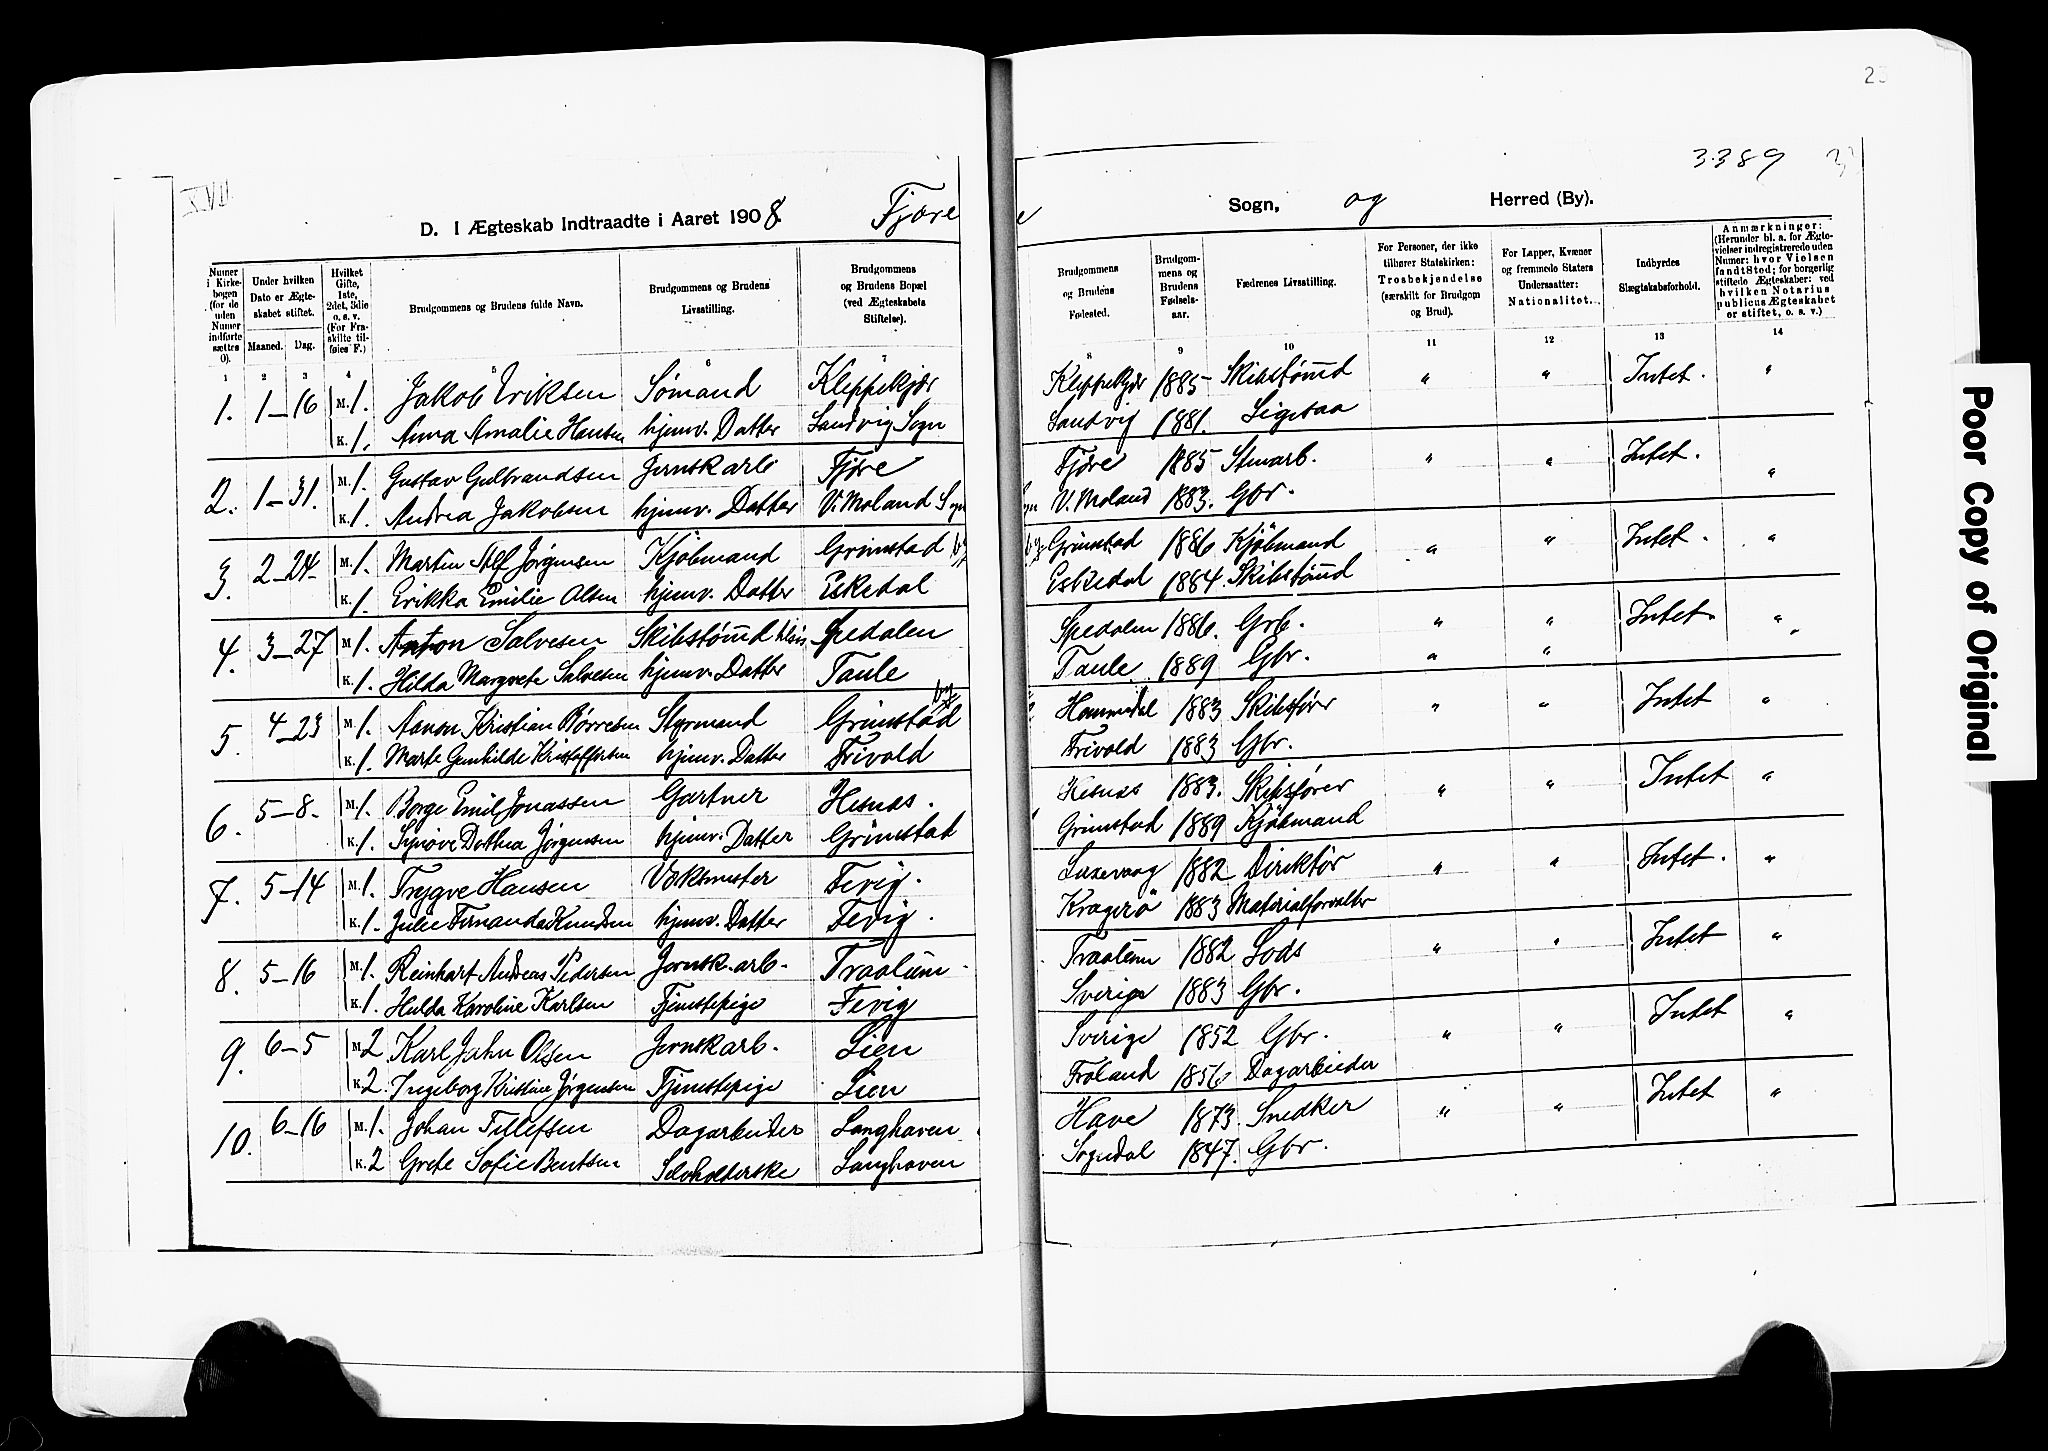 3389
D. I Ægteskab Indtraadte i Aaret 1908. Fjære Sogn, og Herred (By).
Numer i Kirkebogen (for de uden Numer indførte sættes 0).
Under hvilken Dato er Ægteskabet stiftet.
Maaned. Dag.
Hvilket Gifte, 1ste, 2det, 3die o. s. v. (For Fraskilte tilføies F.)
Brudgommens og Brudens fulde Navn.
Brudgommens og Brudens Livsstilling.
Brudgommens og Brudens Bopæl (ved Ægteskabets Stiftelse).
Brudgommens og Brudens Fødested.
Brudgommens og Brudens Fødselsaar.
Fædrenes Livsstilling.
For Personer, der ikke tilhører Statskirken: Trosbekjendelse (særskilt for Brudgom og Brud).
For Lapper, Kvæner og fremmede Staters Undersaatter: Nationalitet.
Indbyrdes Slægtskabsforhold.
Anmærkninger: (Herunder bl. a. for Ægtevielser indregistrerede uden Numer: hvor Vielsen fandt Sted; for borgerlig stiftede Ægteskaber: ved hvilken Notarius publicus Ægteskabet er stiftet, o. s. v.)
1 2 3 4 5 6 7 8 9 10 11 12 13 14
1. 1-16 M. 1. Jakob Eriksen Sømand Kleppekjær Kleppekjær 1885 Skibstømd " " Intet. "
K. 1. Anna Amalie Hansen hjemv. Datter Landvig Sogn Landvig 1881.
2. 1-31. M. 1. Gustav Gulbrandsen Jernskarb Fjære Fjære 1885 Stenarb. " " Intet. "
K. 1. Andrea Jakobsen hjemv. Datter V. Moland Sogn V. Moland 1883. Gbr.
3. 2-24- M. 1. Martin Alf Jørgensen Kjøbmand Grimstad by Grimstad 1886 Kjøbmand " " Intet. "
K. 1. Erikka Emilie Olsen hjemv. Datter Eskedal Eskedal 1884. Skibstømd
4. 3-27 M. 1. Anton Salvesen Skibstømd Spedalen Spedalen 1886. Grb. " " Intet. "
K. 1. Hilda Margrete Salvesen hjemv. Datter Taule Taule 1889 Gbr. " "
5. 4-23 M. 1. Aanon Kristian Børresen Styrmand Grimstad by Hommedal 1883 Skibsfører " " Intet "
K. 1. Marte Gunhilde Kristoffersen hjemv. Datter Frivold Frivold 1883 Gbr.
6. 5-8. M. 1. Borge Emil Jonassen Gartner Hesnæs. Hesnæs 1883. Skibsfører " " Intet "
K. 1. Synøve Dothea Jørgensen hjemv. Datter Grimstad Grimstad 1889 Kjøbmand
7. 5-14 M. 1. Trygve Hansen Fevig. 1882 Direktør " " Intet. "
K. 1. Julie Fernanda Knudsen hjemv. Datter Fevig. Kragerø 1883 Materialforvalter
8. 5-16 M. 1. Reinhart Andreas Pedersen Jernsk.arb. 1882 Lods " " Intet "
K. 1. Hulda Karoline Karlsen Tjenstepige Fevig Sverige 1883 Gbr.
9. 6-5 M. 2 Karl Jahn Olsen Jernskarb. Lien Sverige 1852 Gbr. " " Intet "
K. 2 Ingeborg Kristine Jørgensen Tjenstepige Lien Froland 1856 Dagarbeider
10. 6-16 M. 1. Johan Tellefsen Dagarbeider Langhaven Have 1873. Snedker " " Intet "
K. 2 Grete Sofie Bentsen Selvholderske Langhaven Sogndal 1847. Gbr.
Poor Copy of Original